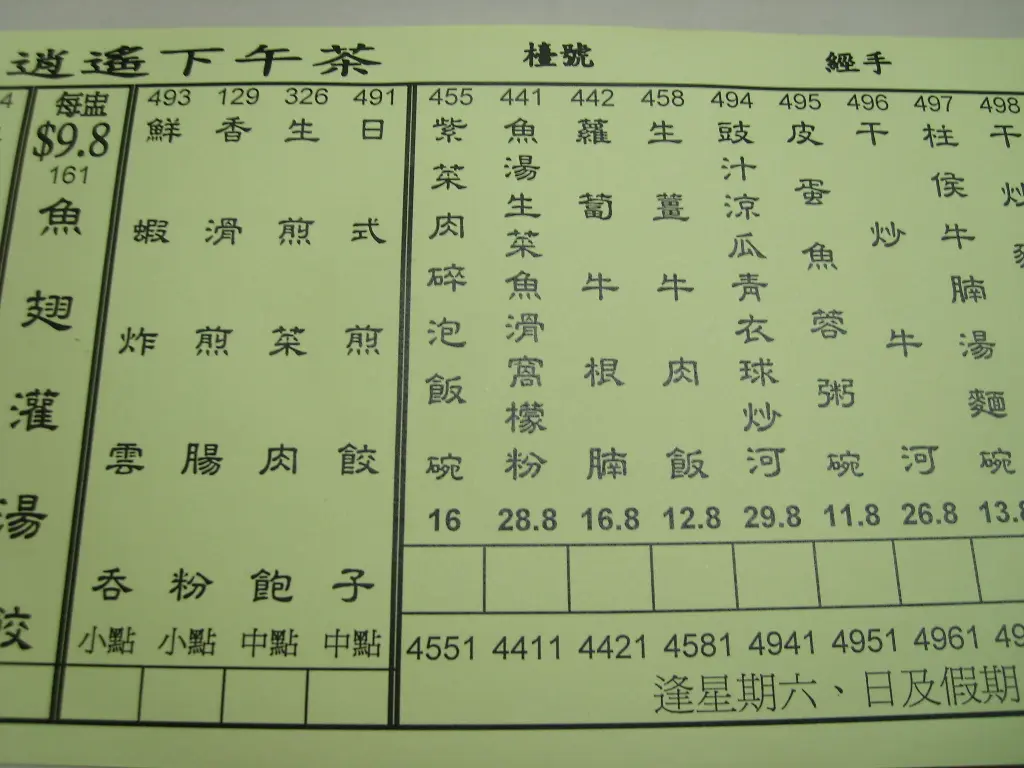 逍遙下午茶
檯號
經手
每盅
$9.8
161
魚翅灌湯餃
493 129 326 491
鮮蝦炸雲呑
香滑煎腸粉
生煎菜肉飽
日式煎餃子
小點 小點 中點 中點
455 441 442 458 494 495 496 497 498
紫菜肉碎泡飯碗
魚湯生菜魚滑窩檬粉
蘿蔔牛根腩
生薑牛肉飯
豉汁涼瓜青衣球炒河
皮蛋魚蓉粥碗
干炒牛河
柱侯牛腩湯麵碗
干炒
16 28.8 16.8 12.8 29.8 11.8 26.8 13.8
4551 4411 4421 4581 4941 4951 4961
逢星期六、日及假期